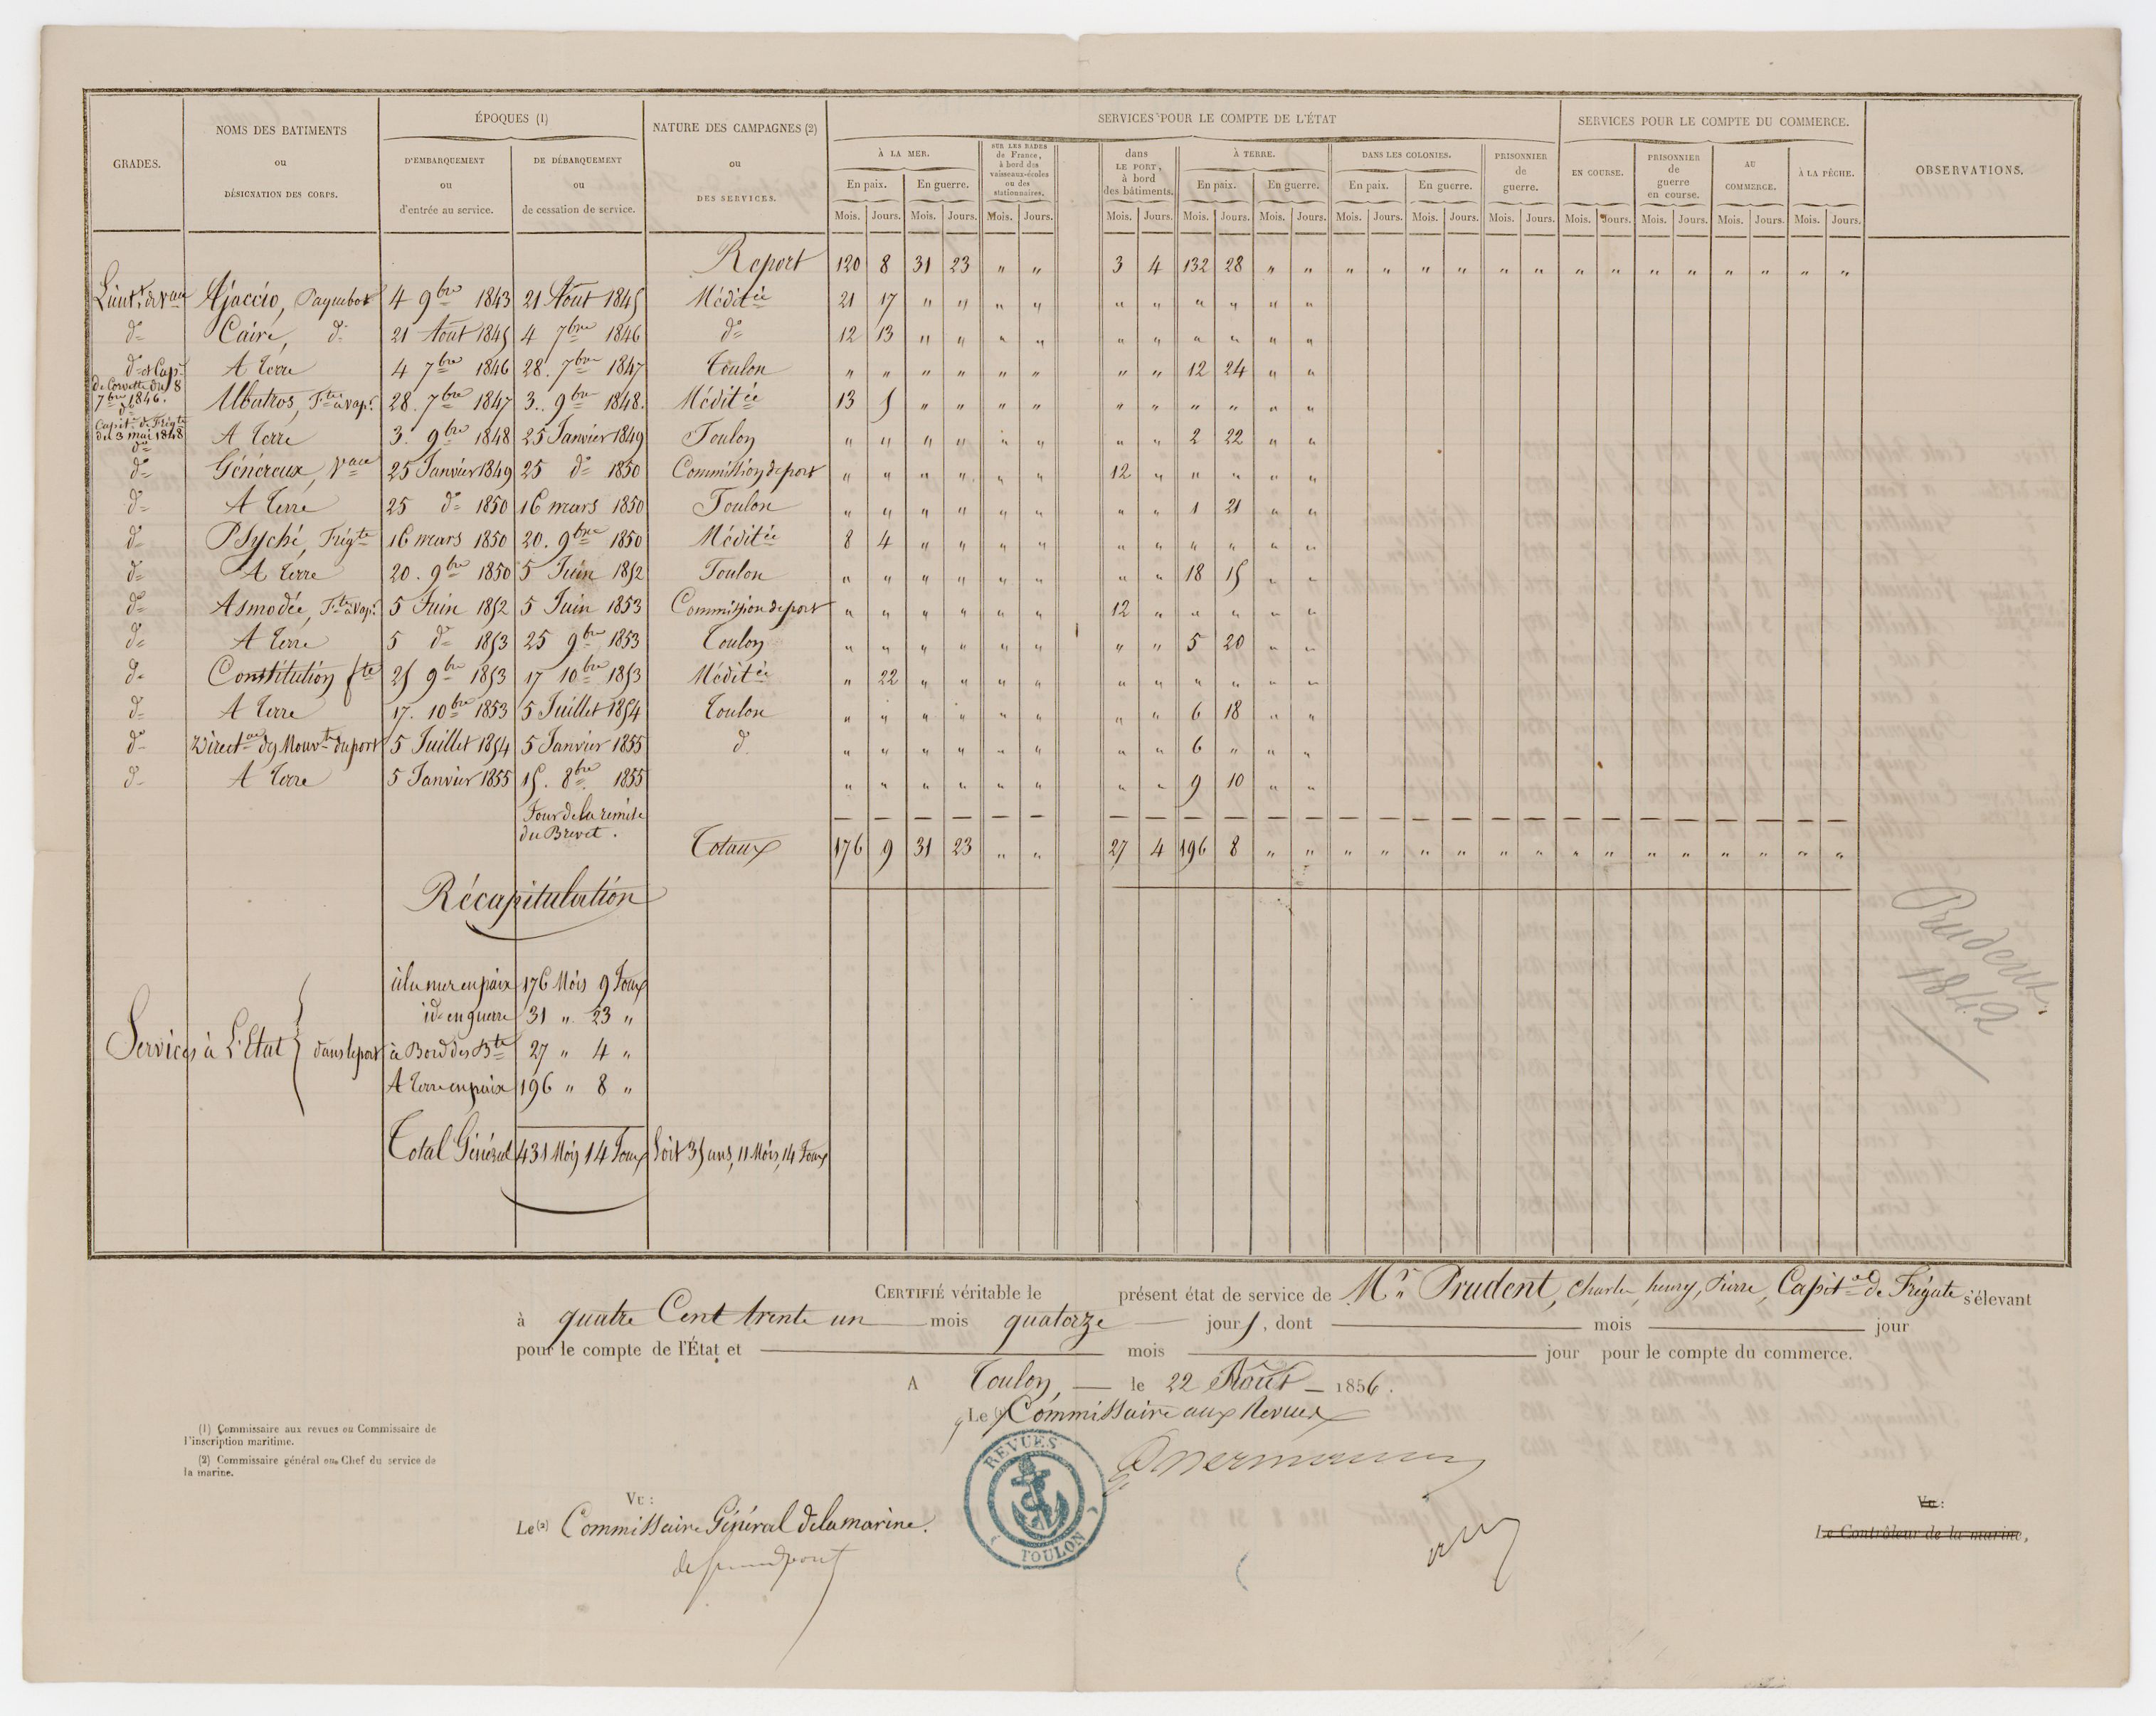 GRADES.
NOMS DES BATIMENTS
ou
DÉSIGNATION DES CORPS.
ÉPOQUES (1)
D'EMBARQUEMENT
ou
d'entrée au service.
DE DÉBARQUEMENT
ou
de cessation de service.
NATURE DES CAMPAGNES (2)
ou
DES SERVICES.
SERVICES POUR LE COMPTE DE L'ÉTAT
À LA MER.
En paix. En guerre.
SUR LES RADES
de France,
à bord des
vaisseaux-écoles
ou des
stationnaires.
dans
LE PORT,
à bord
des bâtiments.
À TERRE.
En paix. En guerre.
DANS LES COLONIES.
En paix. En guerre.
PRISONNIER
de
guerre.
SERVICES POUR LE COMPTE DU COMMERCE.
EN COURSE.
PRISONNIER
de
guerre
en course.
AU
COMMERCE.
À LA PÊCHE.
OBSERVATIONS.
Mois. Jours. Mois. Jours. Mois. Jours. Mois. Jours. Mois. Jours. Mois. Jours. Mois. Jours. Mois. Jours. Mois. Jours. Mois. Jours. Mois. Jours. Mois. Jours. Mois. Jours.
Report 120 8 31 23 " " 3 4 132 28 " " " " " " " " " " " " " " " "
Lieut.t de Vau Ajaccio, Paquebot 4 9bre 1843 21 Aout 1845 Médit.ée 21 17 " " " " " " " " " "
do Caire, do 21 Aout 1845 4 7bre 1846 do 12 13 " " " " " " " " " "
do et Cap.e A Terre 4 7bre 1846 28. 7bre 1847 Toulon " " " " " " " " 12 24 " "
de Corvette du 8
7bre 1846.
do Albatros, F.te à vap.r 28. 7bre 1847 3.. 9bre 1848. Médit.ée 13 5 " " " " " " " " " "
Capit.e de Frég.te
du 3 mai 1848 A Terre 3. 9bre 1848 25 Janvier 1849 Toulon " " " " " " " " 2 22 " "
do
do Généreux, Vau 25 Janvier 1849 25 do 1850 Commission de port " " " " " " 12 " " " " "
do A Terre 25 do 1850 16 mars 1850 Toulon " " " " " " " " 1 21 " "
do Psyché, Frég.te 16 mars 1850 20. 9bre 1850 Médit.ée 8 4 " " " " " " " " " "
do A Terre 20. 9bre 1850 5 Juin 1852 Toulon " " " " " " " " 18 15 " "
do Asmodée, F.te à Vap.r 5 Juin 1852 5 Juin 1853 Commission de port " " " " " " 12 " " " " "
do A Terre 5 do 1853 25 9bre 1853 Toulon " " " " " " " " 5 20 " "
do Constitution fte 25 9bre 1853 17 10bre 1853 Médit.ée " 22 " " " " " " " " " "
do A Terre 17. 10bre 1853 5 Juillet 1854 Toulon " " " " " " " " 6 18 " "
do Direct.on des Mouv.ts du port 5 Juillet 1854 5 Janvier 1855 d. " " " " " " " " 6 " " "
do A Terre 5 Janvier 1855 15. 8bre 1855 " " " " " " " " 9 10 " "
Jour de la remise
du Brevet.
Totaux 176 9 31 23 " " 27 4 196 8 " " " " " " " " " " " " " " " "
Récapitulation
Prudent
1842
à la mer en paix 176 Mois 9 Jours
id en guerre 31 " 23 "
Services à L'Etat dans le port à Bord des Bts 27 " 4 "
A Terre en paix 196 " 8 "
Total Général 431 Mois 14 Jours Soit 35 ans, 11 Mois, 14 Jours
CERTIFIÉ véritable le présent état de service de Mr. Prudent, Charles, henry, Pierre, Capit.e de Frégate s'élevant
à quatre Cent trente un mois quatorze jours, dont mois jour
pour le compte de l'État et mois jour pour le compte du commerce.
A Toulon, le 22 Août 1856.
Le (1) Commissaire aux Revues
(1) Commissaire aux revues ou Commissaire de
l'inscription maritime.
(2) Commissaire général ou Chef du service de
la marine.
REVUES
TOULON
VU :
Le (2) Commissaire Général de la marine.
Vu :
Le Contrôleur de la marine,